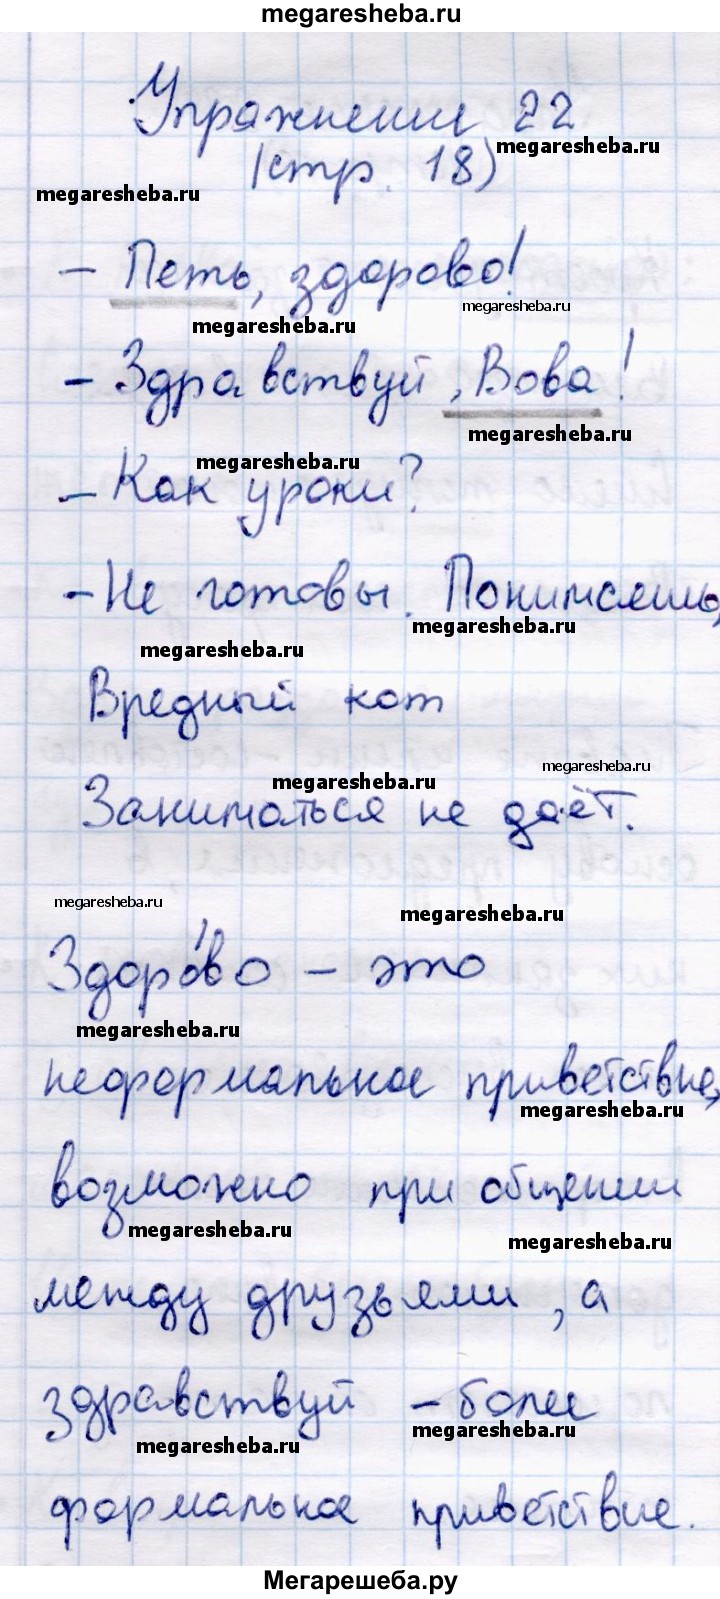 megaresheba.ru
Упражнение 22
megaresheba.ru
(стр. 18)
megaresheba.ru
- Петь, здорово!
megaresheba.ru
megaresheba.ru
- Здравствуй, Вова!
megaresheba.ru
megaresheba.ru
- Как уроки?
- Не готовы. Понимаешь,
megaresheba.ru
megaresheba.ru
Вредный кот
megaresheba.ru
megaresheba.ru
Заниматься не даёт.
megaresheba.ru
megaresheba.ru
Здоро́во – это
megaresheba.ru
неформальное приветствие,
megaresheba.ru
возможно при общении
megaresheba.ru
megaresheba.ru
между друзьями, а
здравствуй – более
megaresheba.ru
megaresheba.ru
формальное приветствие.
Мегарешеба.ру